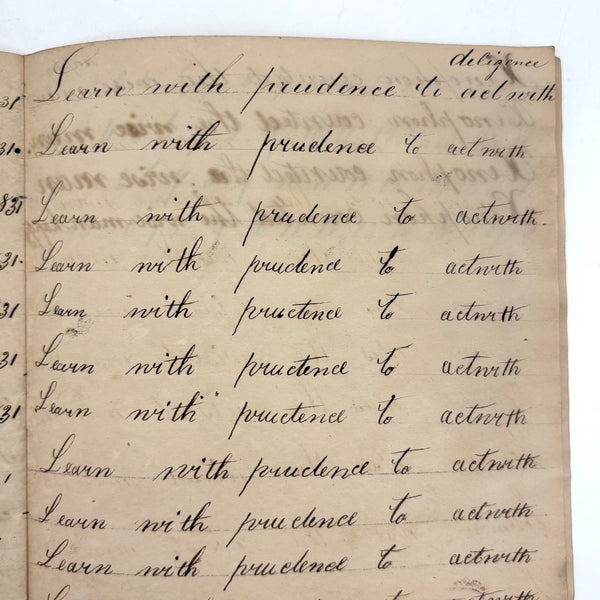 diligence
31 Learn with prudence to act with
31. Learn with prudence to act with
31 Learn with prudence to act with.
31. Learn with prudence to act with
31 Learn with prudence to act with
31 Learn with prudence to act with
31 Learn with prudence to act with
Learn with prudence to act with
Learn with prudence to act with
Learn with prudence to act with